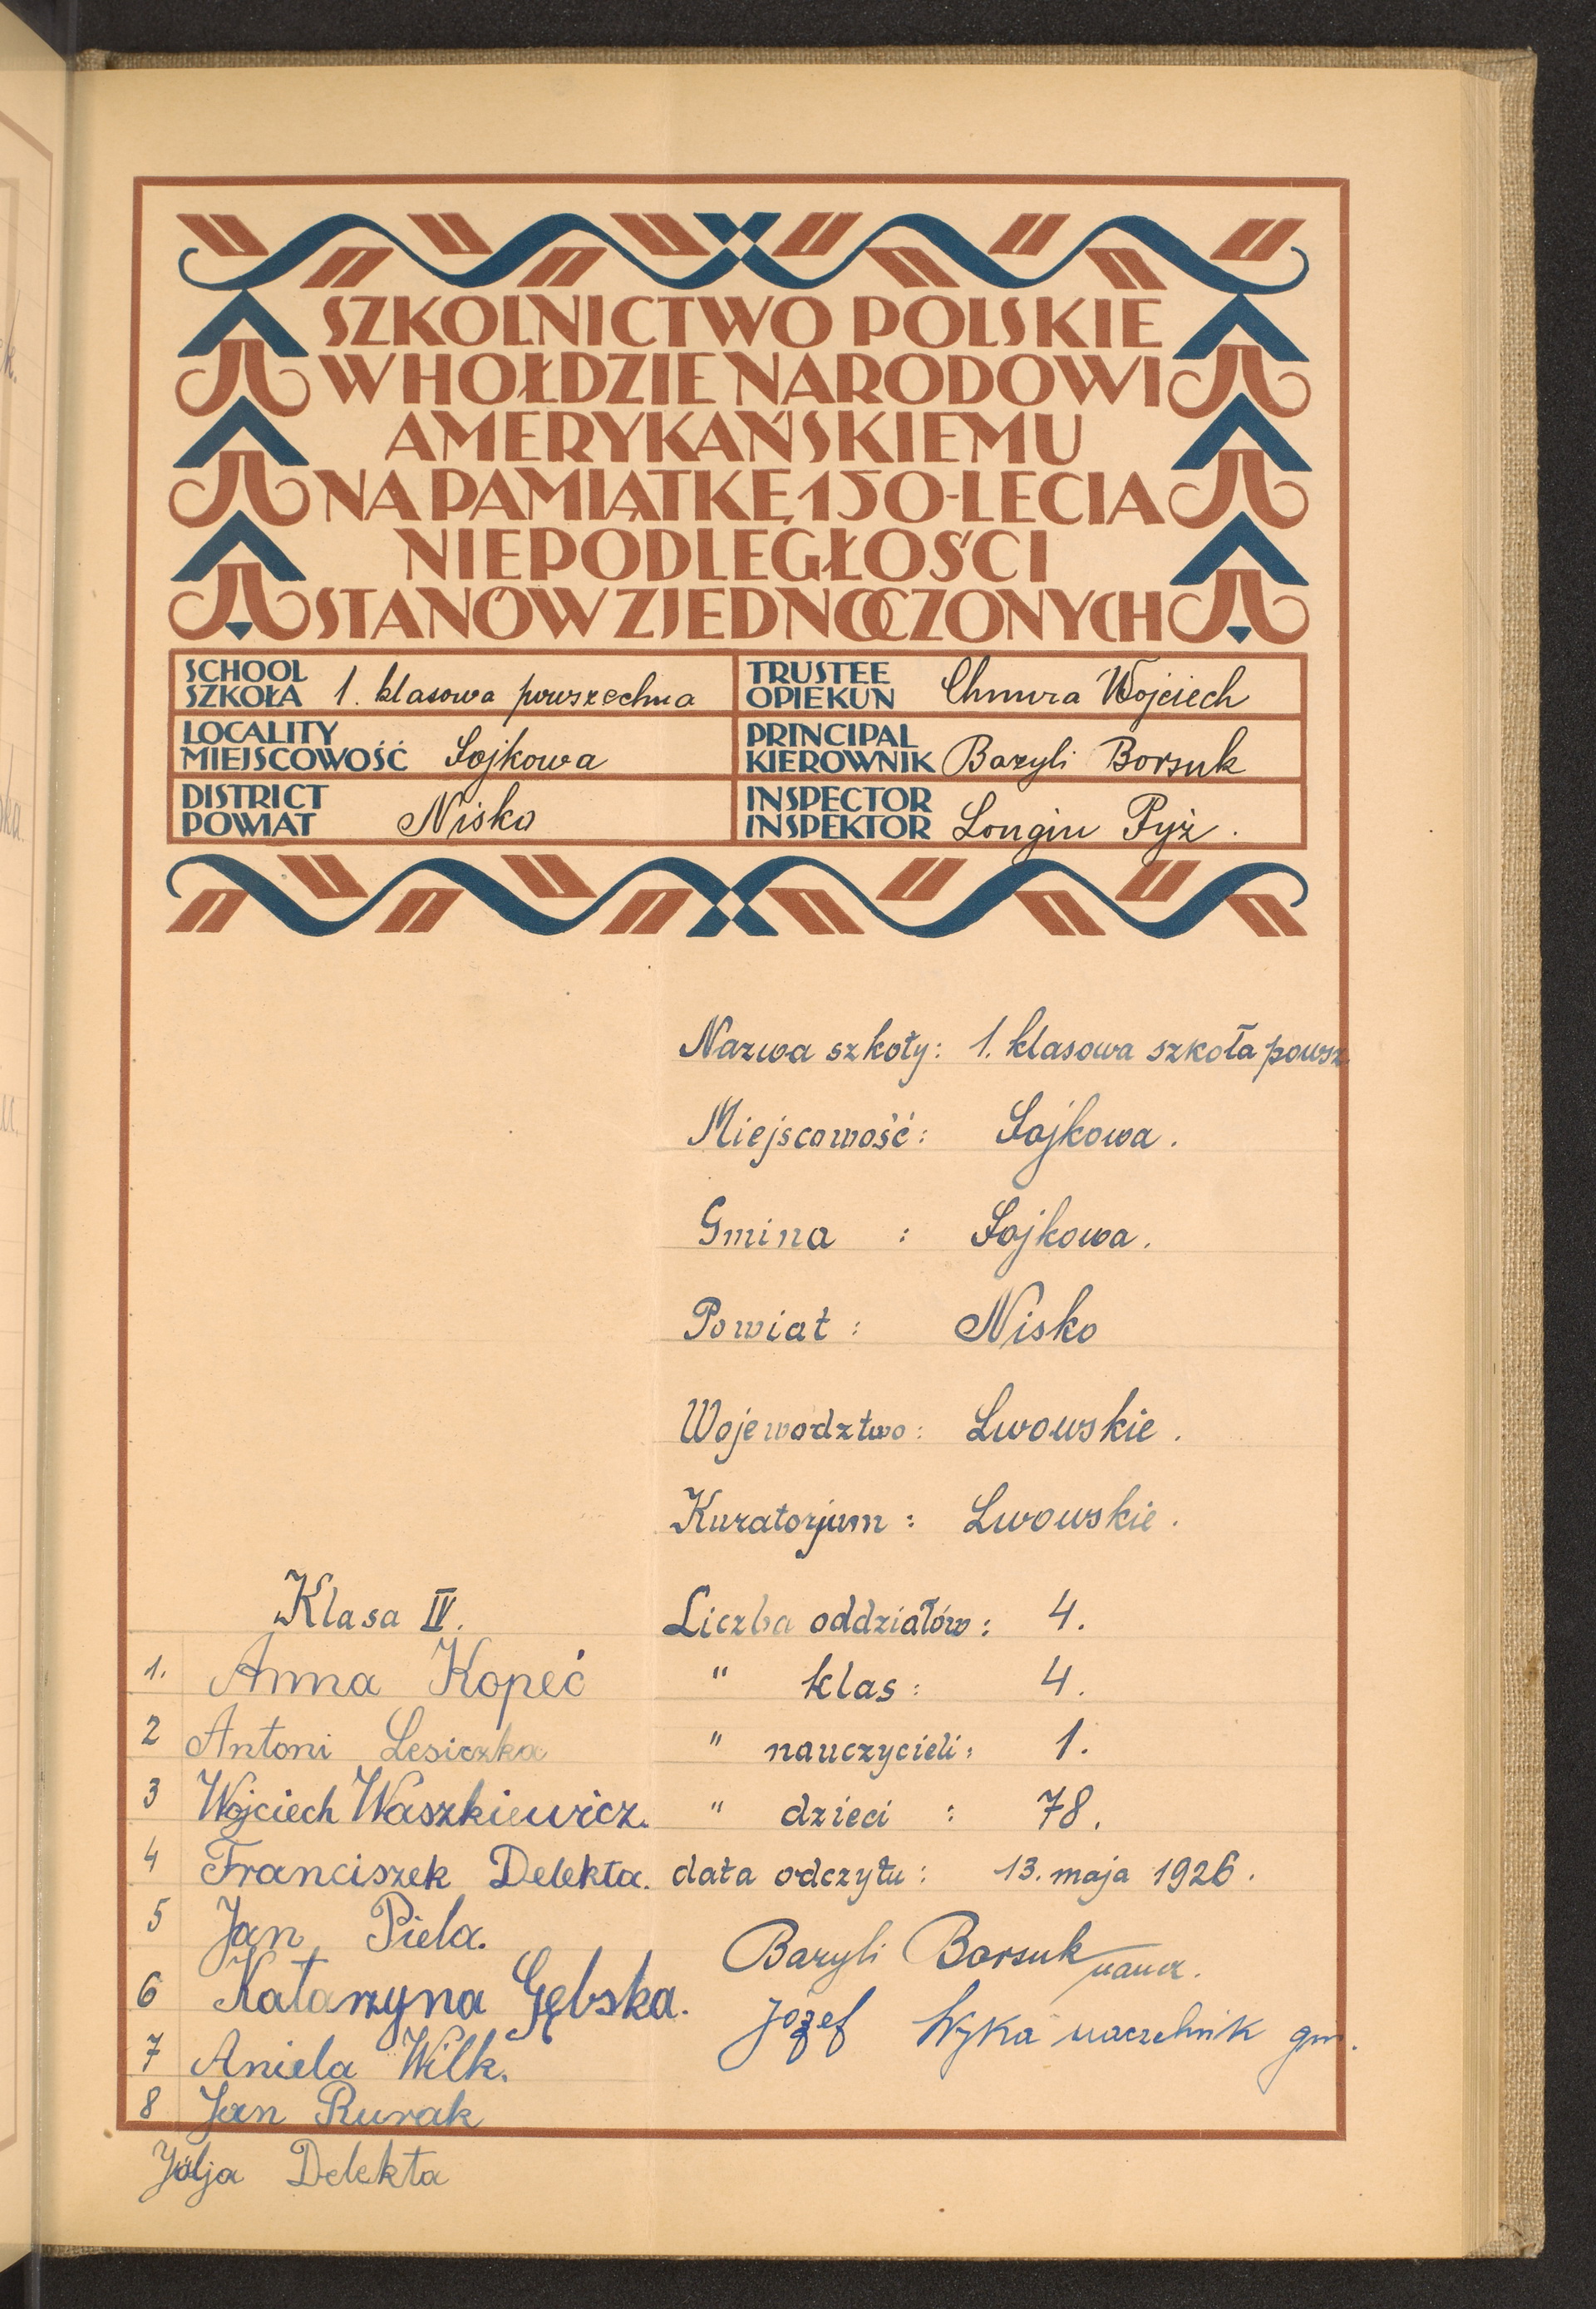 SZKOLNICTWO POLSKIE
W HOŁDZIE NARODOWI
AMERYKAŃSKIEMU
NA PAMIĄTKĘ 150-LECIA
NIEPODLEGŁOŚCI
STANÓW ZJEDNOCZONYCH
SCHOOL
SZKOŁA 1. klasowa powszechna
TRUSTEE
OPIEKUN Chmura Wojciech
LOCALITY
MIEJSCOWOŚĆ Sojkowa
PRINCIPAL
KIEROWNIK Bazyli Borsuk
DISTRICT
POWIAT Nisko
INSPECTOR
INSPEKTOR Longin Pyż.
Nazwa szkoły: 1. klasowa szkoła powsz
Miejscowość: Sojkowa.
Gmina : Sojkowa.
Powiat: Nisko
Wojewodztwo: Lwowskie.
Kuratorjum: Lwowskie.
Liczba oddziałów: 4.
" klas: 4.
" nauczycieli: 1.
" dzieci : 78.
data odczytu: 13. maja 1926.
Bazyli Borsuk naucz.
Józef Wyka naczelnik gm.
Klasa IV.
1. Anna Kopeć
2 Antoni Lesiczka
3 Wojciech Waszkiewicz.
4 Franciszek Delekta.
5 Jan Piela.
6 Katarzyna Gębska.
7 Aniela Wilk.
8 Jan Rurak
Delekta